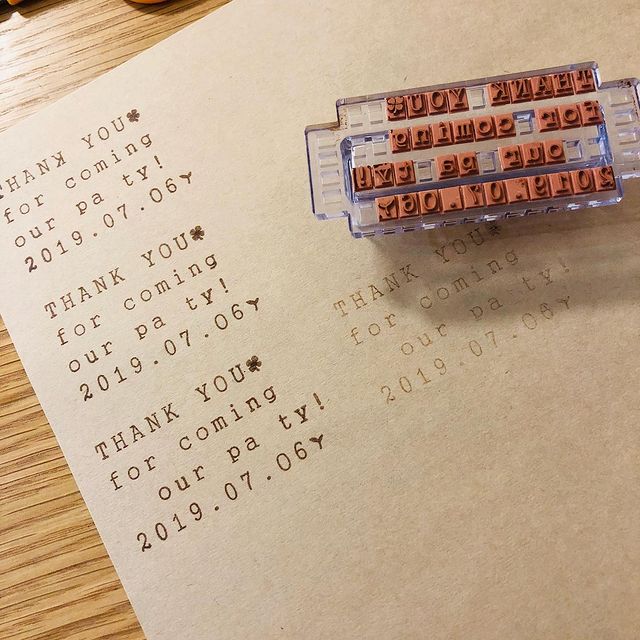 THANK YOU
for coming
our pa ty!
2019.07.06
THANK YOU
for coming
our pa ty!
2019.07.06
THANK YOU
for coming
our pa ty!
2019.07.06
THANK YOU
for coming
our pa ty!
2019.07.06
THANK YOU
for coming
our pa ty!
2019.07.06